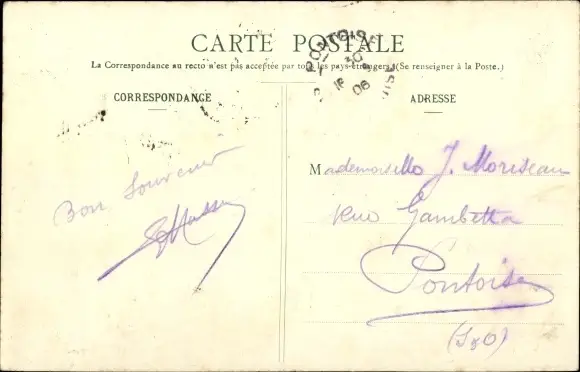 CARTE POSTALE
La Correspondance au recto n'est pas acceptée par tous les pays étrangers (Se renseigner à la Poste.)
CORRESPONDANCE
Bon Souvenir
ADRESSE
Mademoiselle J. Moriseau
Rue Gambetta
Pontoise
(S&O)
PONTOISE
30
06